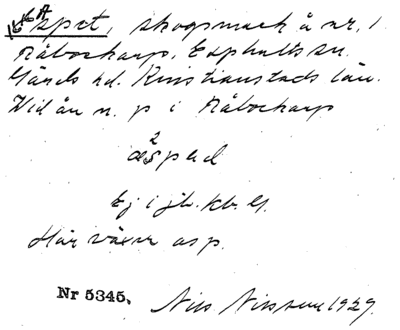 Äspet, skogsmark å nr. 1
Råbockarp, Esphults sn.
Gärds hd. Kristianstads län.
Vid ån n. p i Råbockarp
2
æspəd
Ej i jb. kb. El.
Här växer asp.
Nr 5345. Nils Nilsson 1929.